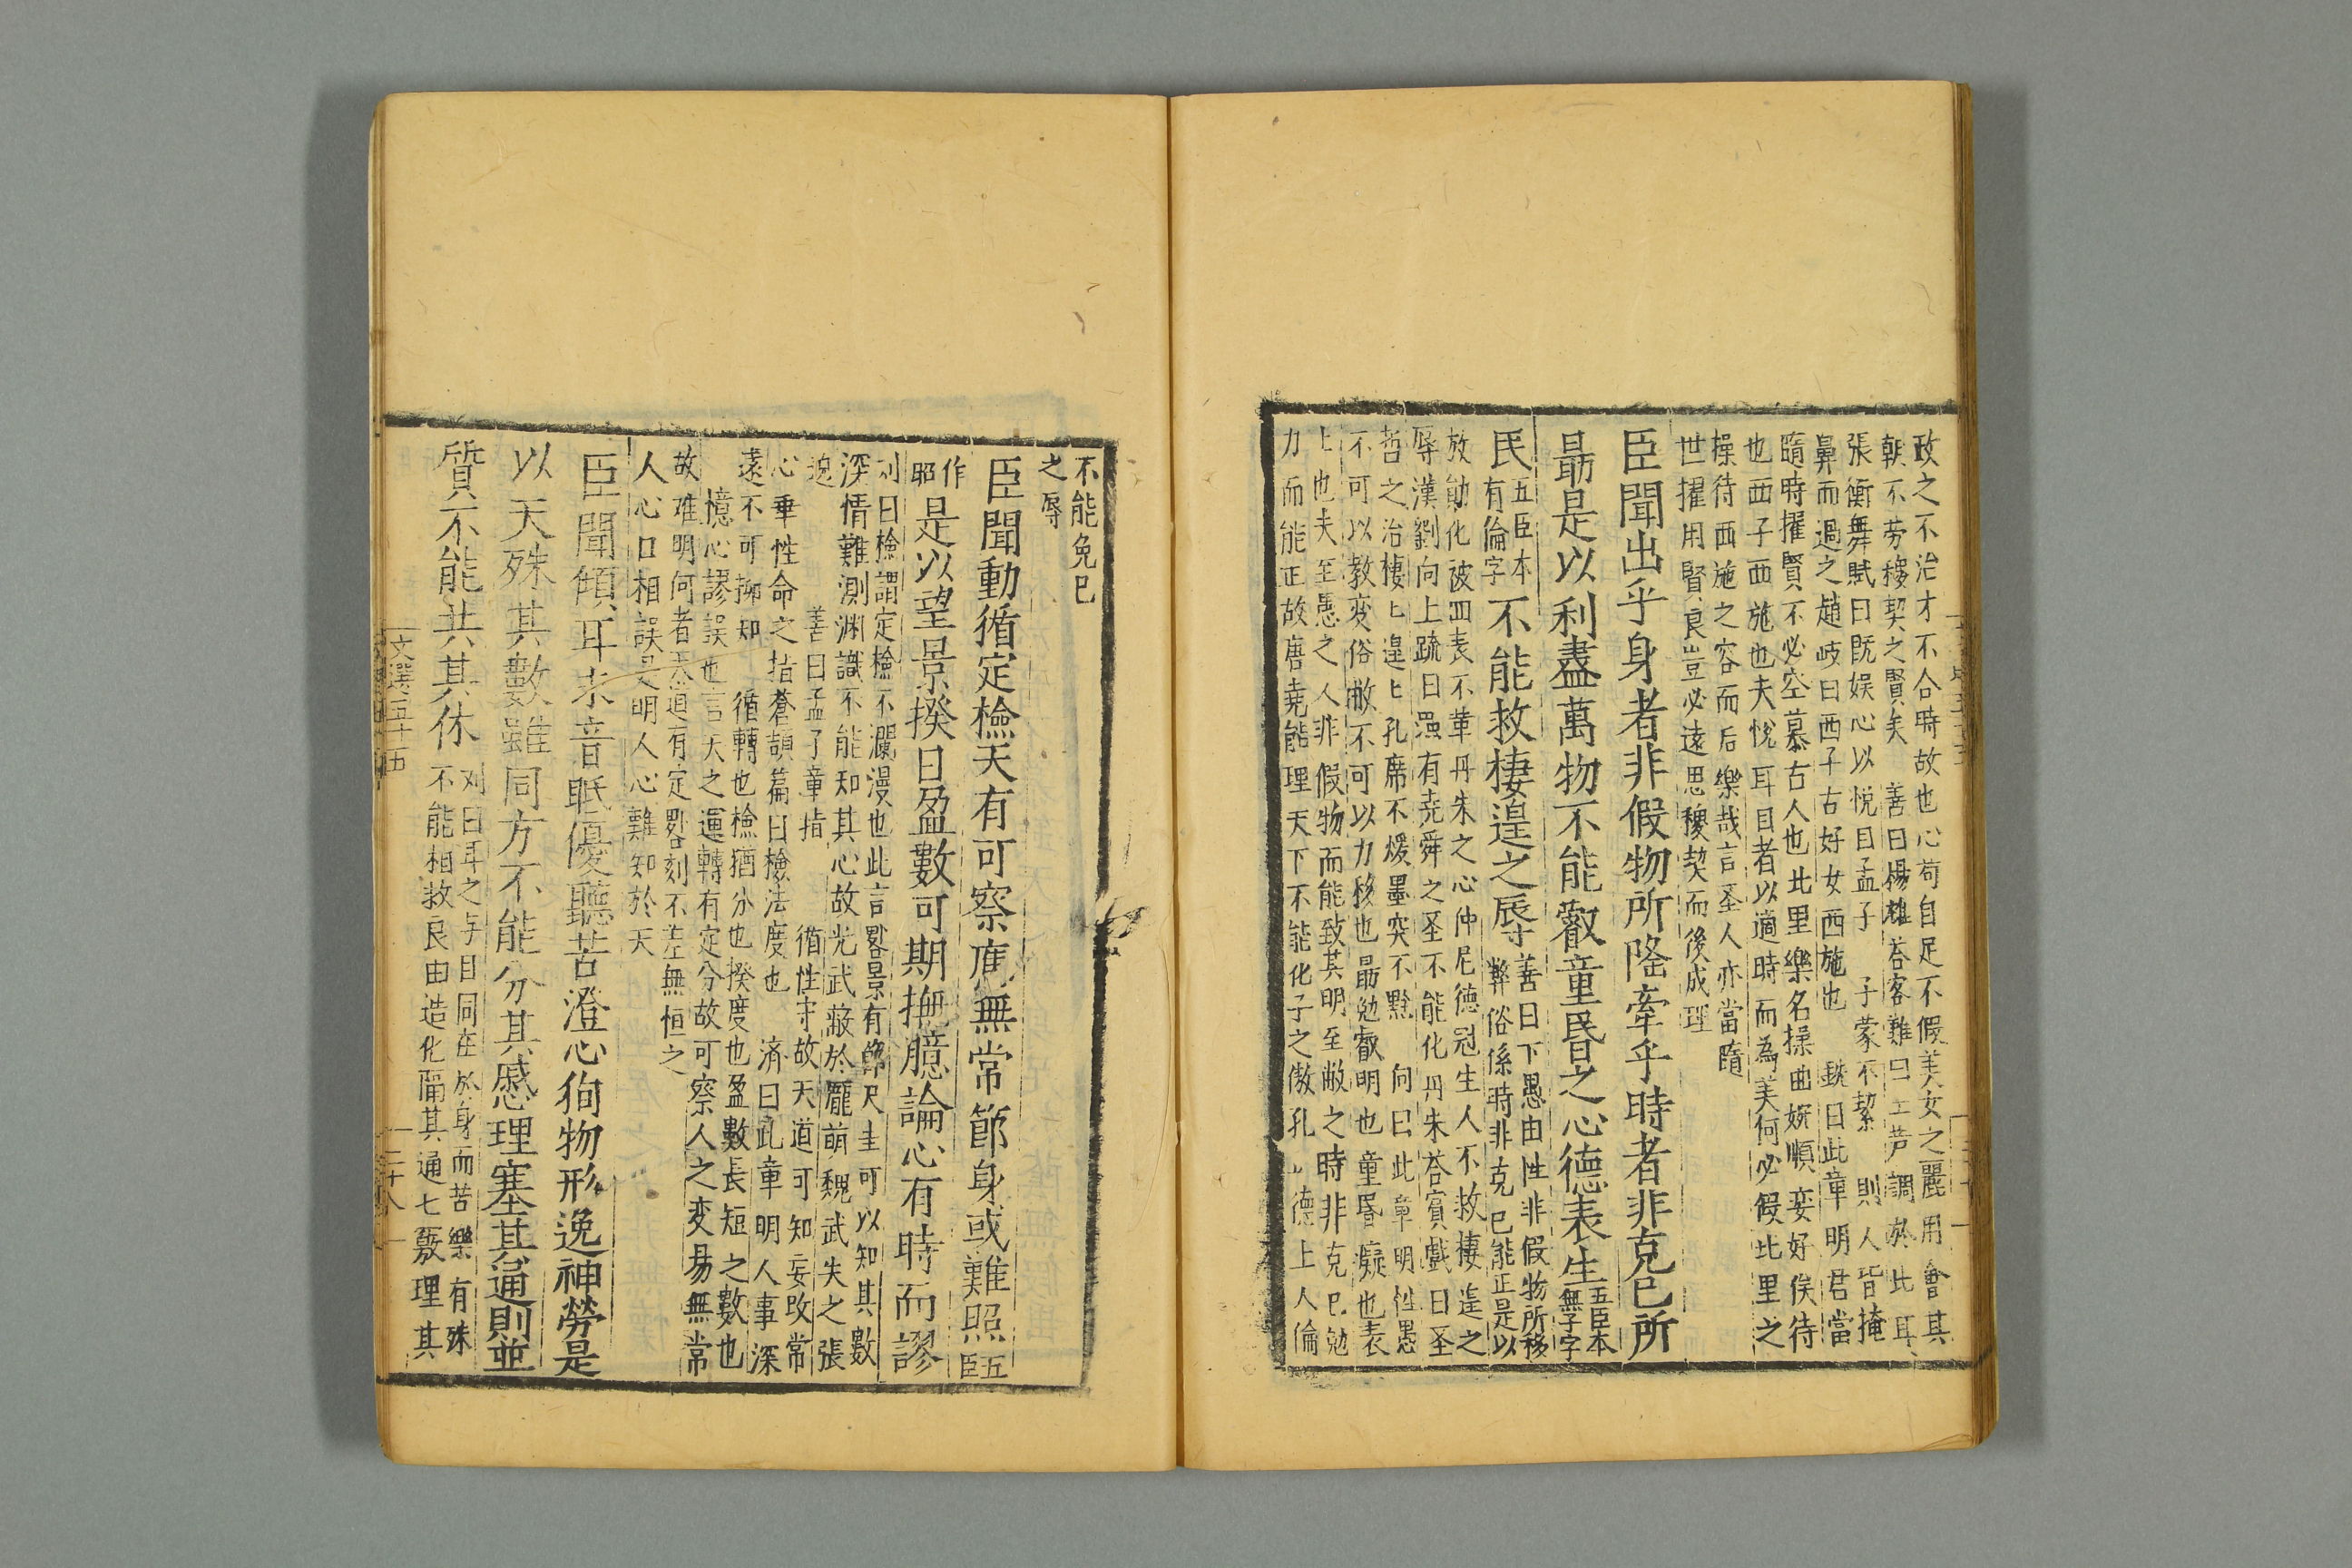 政之不治才不合時故也心苟自足不假美女之麗用會其
朝不劳稷契之賢矣　善曰楊雄荅客難曰　調於比耳
張衡舞賦曰既娱心以悅目孟子　子蒙不絜　則人皆掩
鼻而過之趙岐曰西子古好女西施也　銑曰此章明君當
隨時擢賢不必空慕古人也北里樂名操曲婉順妾好侯待
也西子西施也夫悅耳目者以適時而為美何必假北里之
操待西施之容而后樂哉言圣人亦當隨
世擢用賢良豈必遠思稷契而後成理
臣聞出乎身者非假物所隆牽乎時者非克已所
勗是以利盡萬物不能叡童昬之心德表生五臣本無字字
民五臣本有倫字不能救棲遑之辱善曰下愚由性非假物所移
弊俗係時非克已能正是以
放勛化被四表不革丹朱之心仲尼德冠生人不救棲遑之
辱漢劉向上疏曰虽有尭舜之圣不能化丹朱荅賓戲曰圣
哲之治棲匕遑匕孔席不煖墨突不黔　向曰此章明性愚
不可以教变俗敝不可以力移也勗勉叡明也童昬癡也表
上也夫至愚之人非假物而能致其明至敝之時非克已勉
力而能正故唐尭能理天下不能化子之傲孔　德上人倫
不能免已
之辱
臣聞動循定檢天有可察應無常節身或難照五臣
作昭是以望景揆日盈數可期撫臆論心有時而謬
刘曰檢謂定檢不瀾漫也此言畧景有節尺圭可以知其數
深情難測渊識不能知其心故光武蔽於龐萌魏武失之張
邈　善曰孟子章指　循性守故天道可知妄攺常
心乖性命之指蒼頡篇曰檢法度也　済曰此章明人事深
遠不可抑知　循轉也檢猶分也揆度也盈數長短之數也
憶心謬誤也言天之運轉有定分故可察人之变易無常
故难明何者天道有定晷刻不差無恒之
人心口相誤是明人心難知於天
臣聞傾耳求音眂優聽苦澄心徇物形逸神勞是
以天殊其數雖同方不能分其慼理塞其通則並
質不能共其休刘曰耳之与目同在於身而苦樂有殊
不能相救良由造化隔其通七竅理其
文選五十五
二十八